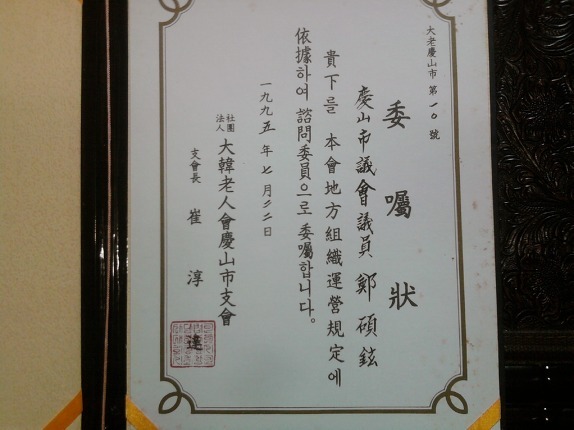 大老慶山市 第一〇號
委囑狀
慶山市議會議員 鄭碩鉉
貴下를 本會地方組織運營規定에
依據하여 諮問委員으로 委囑합니다。
一九九五年 七月 二二日
社團法人 大韓老人會慶山市支會
支會長 崔淳達